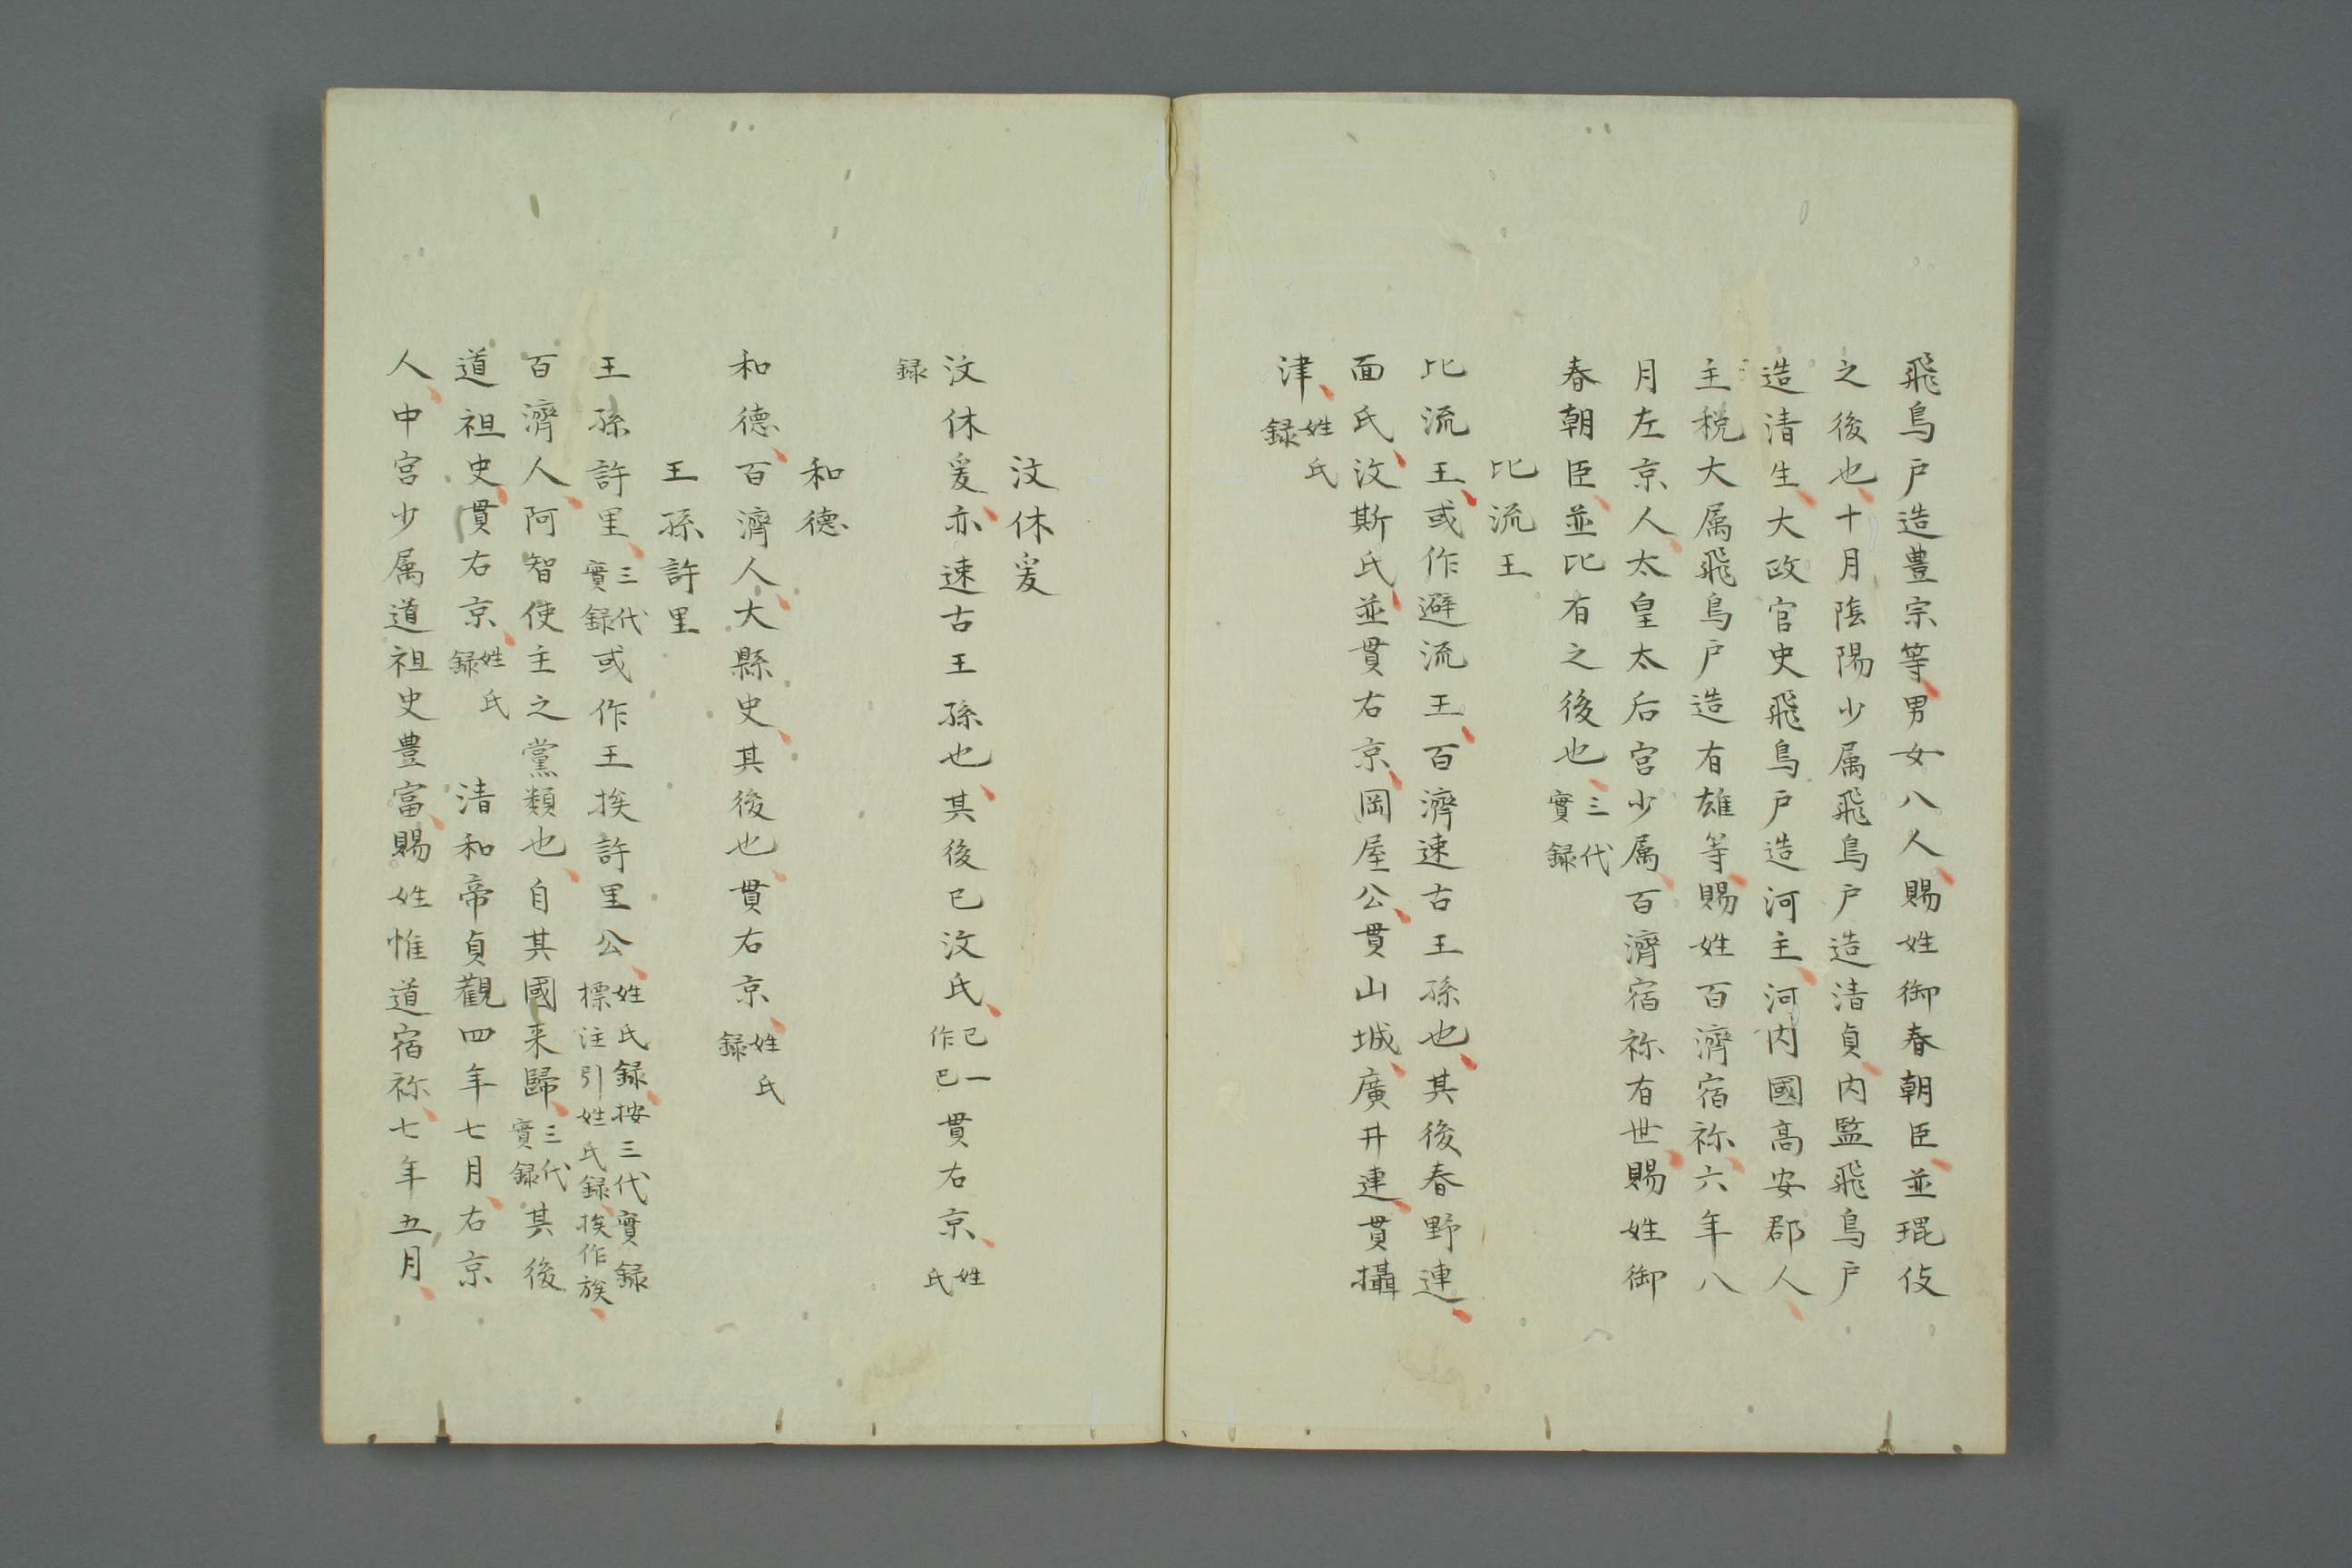 飛鳥戸造豊宗等男女八人賜姓御春朝臣並琨伎
之後也十月陰陽少属飛鳥戸造清貞内監飛鳥戸
造清生大政官史飛鳥戸造河主河内國高安郡人
主税大属飛鳥戸造有雄等賜姓百濟宿祢六年八
月左京人太皇太后宮少属百濟宿祢有世賜姓御
春朝臣並比有之後也三代實録
比流王
比流王或作避流王百濟速古王孫也其後春野連
面氏汶斯氏並貫右京岡屋公貫山城廣井連貫攝
津姓氏録
汶休爰
汶休爰亦速古王孫也其後已汶氏已一作巴貫右京姓氏
録
和德
和德百濟人大縣史其後也貫右京姓氏録
王孫許里
王孫許里三代實録或作王挨許里公姓氏録按三代實録標注引姓氏録挨作族
百濟人阿智使主之黨類也自其國来歸三代實録其後
道祖史貫右京姓氏録 清和帝貞觀四年七月右京
人中宮少属道祖史豊富賜姓惟道宿祢七年五月